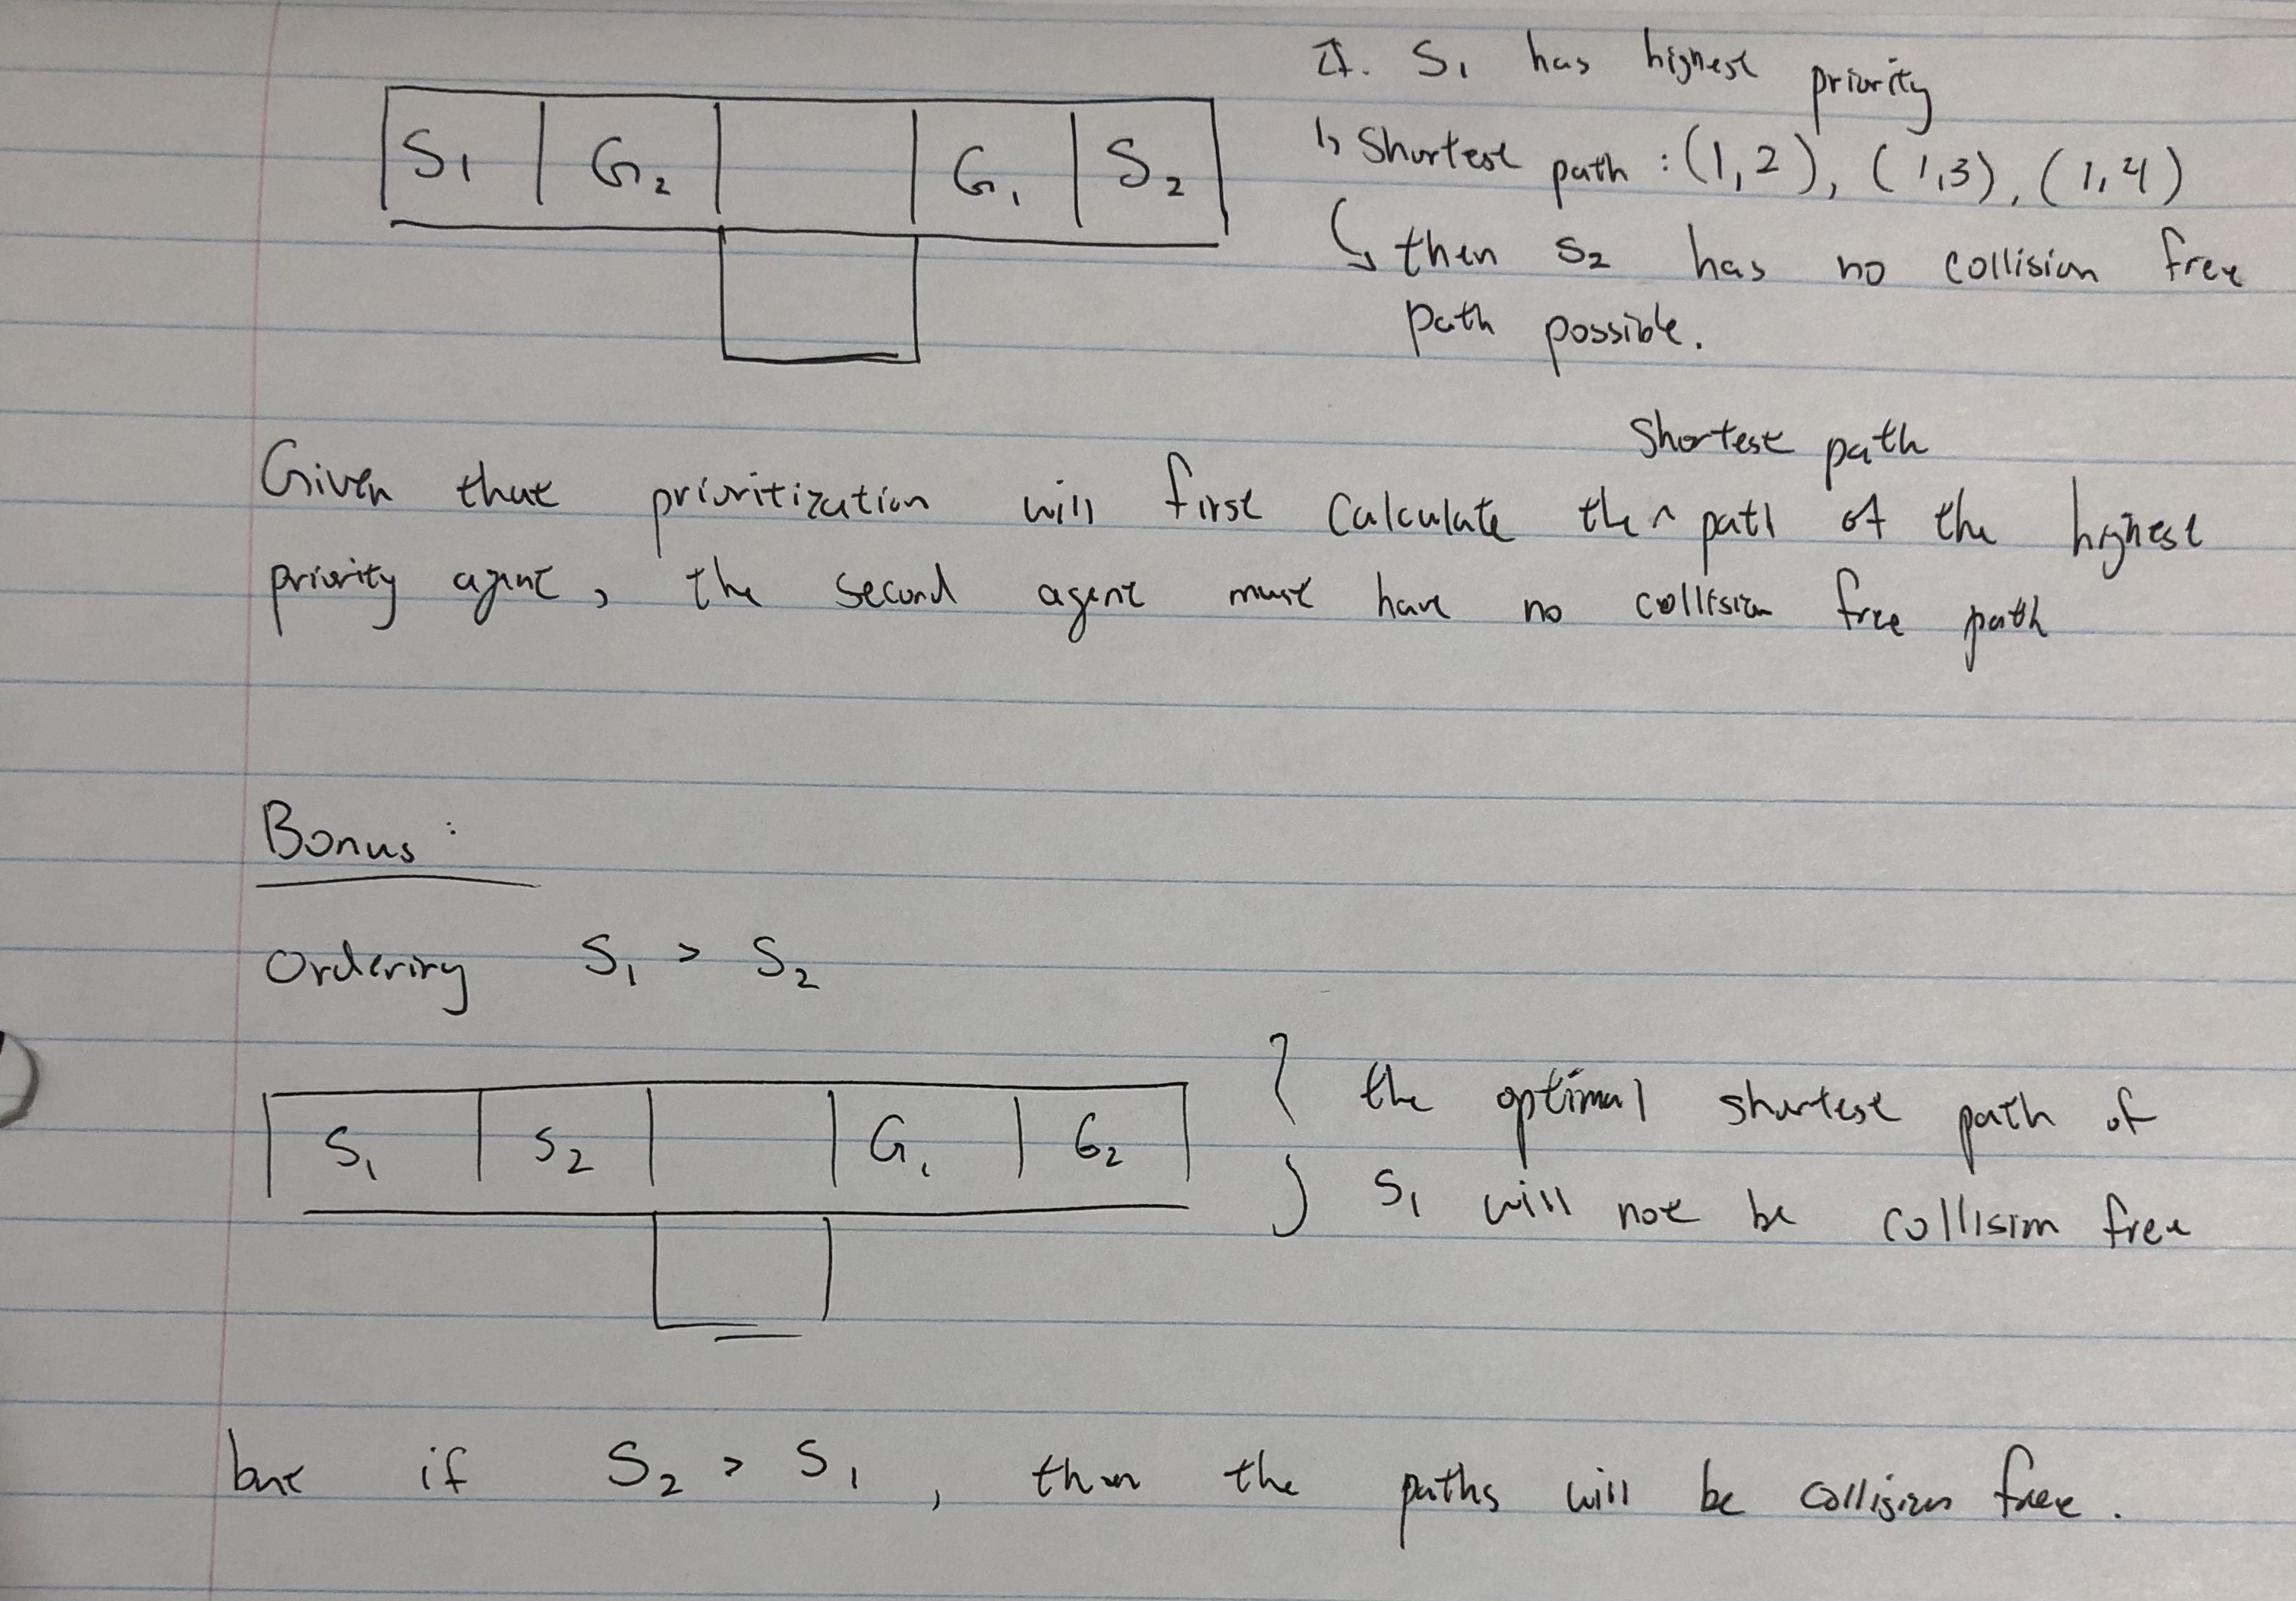 S1 G2 G1 S2
If. S1 has highest priority
↳ Shortest path : (1,2), (1,3), (1,4)
↳ then S2 has no collision free
path possible.
Shortest path
Given that prioritization will first calculate the ^ path of the highest
priority agent, the second agent must have no collision free path
Bonus:
Ordering S1 > S2
S1 S2 G1 G2
} the optimal shortest path of
S1 will not be collision free
but if S2 > S1, then the paths will be collision free.